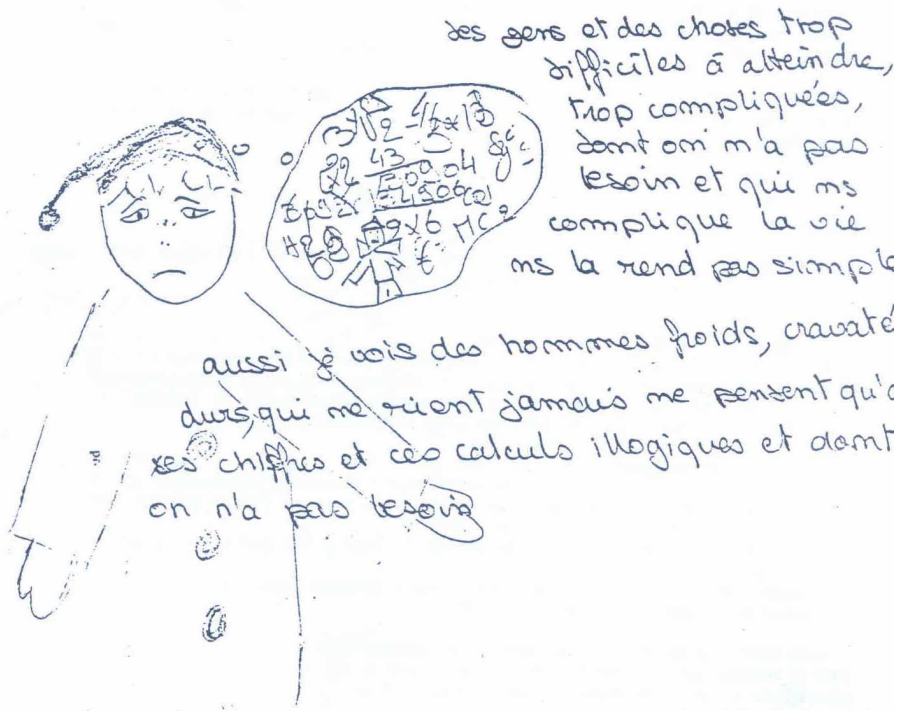 des gens et des choses trop
difficiles à atteindre,
trop compliquées,
dont on n'a pas
besoin et qui ns
complique la vie
ns la rend pas simple
aussi je vois des hommes froids, cravaté
durs, qui ne rient jamais ne pensent qu'à
ces chiffres et ces calculs illogiques et dont
on n'a pas besoin
MC²